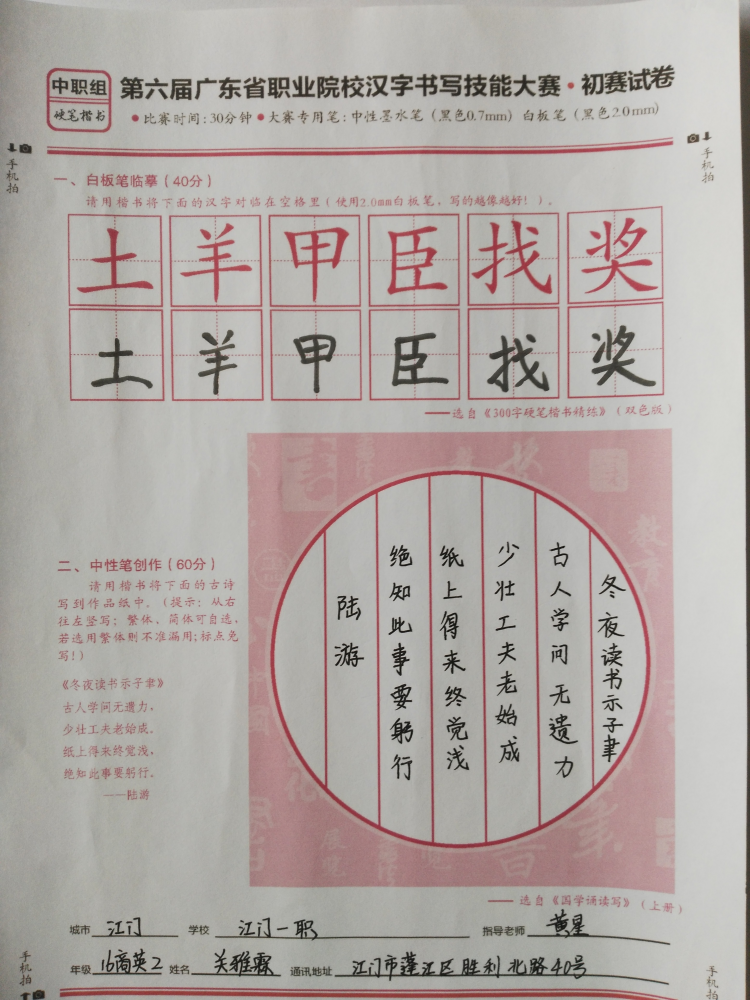 中职组
硬笔楷书
第六届广东省职业院校汉字书写技能大赛·初赛试卷
●比赛时间:30分钟●大赛专用笔:中性墨水笔(黑色0.7mm) 白板笔(黑色2.0mm)
手机拍
手机拍
一、白板笔临摹(40分)
请用楷书将下面的汉字对临在空格里(使用2.0mm白板笔,写的越像越好!)。
土羊甲臣找奖
土羊甲臣找奖
——选自《300字硬笔楷书精练》(双色版)
二、中性笔创作(60分)
请用楷书将下面的古诗
写到作品纸中。(提示:从右
往左竖写;繁体、简体可自选,
若选用繁体则不准漏用;标点免
写!)
《冬夜读书示子聿》
古人学问无遗力,
少壮工夫老始成。
纸上得来终觉浅,
绝知此事要躬行。
——陆游
冬夜读书示子聿
古人学问无遗力
少壮工夫老始成
纸上得来终觉浅
绝知此事要躬行
陆游
教育
展览
——选自《国学诵读写》(上册)
城市 江门 学校 江门一职 指导老师 黄星
年级 16商英2 姓名 关雅霖 通讯地址 江门市蓬江区胜利北路40号
手机拍
手机拍